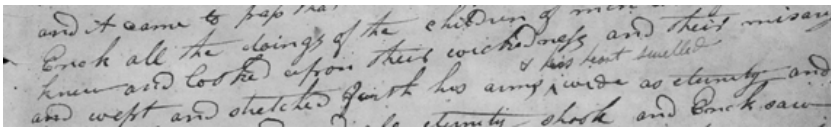 and it came to pass that
Enok all the doings of the children of men
knew and looked upon their wickedness and their misary
& his heart swelled
and wept and stretched forth his arms wide as eternity and
eternity shook and Enok saw